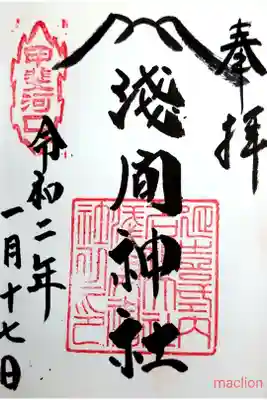 奉拝
浅間神社
甲斐河口
令和二年
一月十七日
maclion